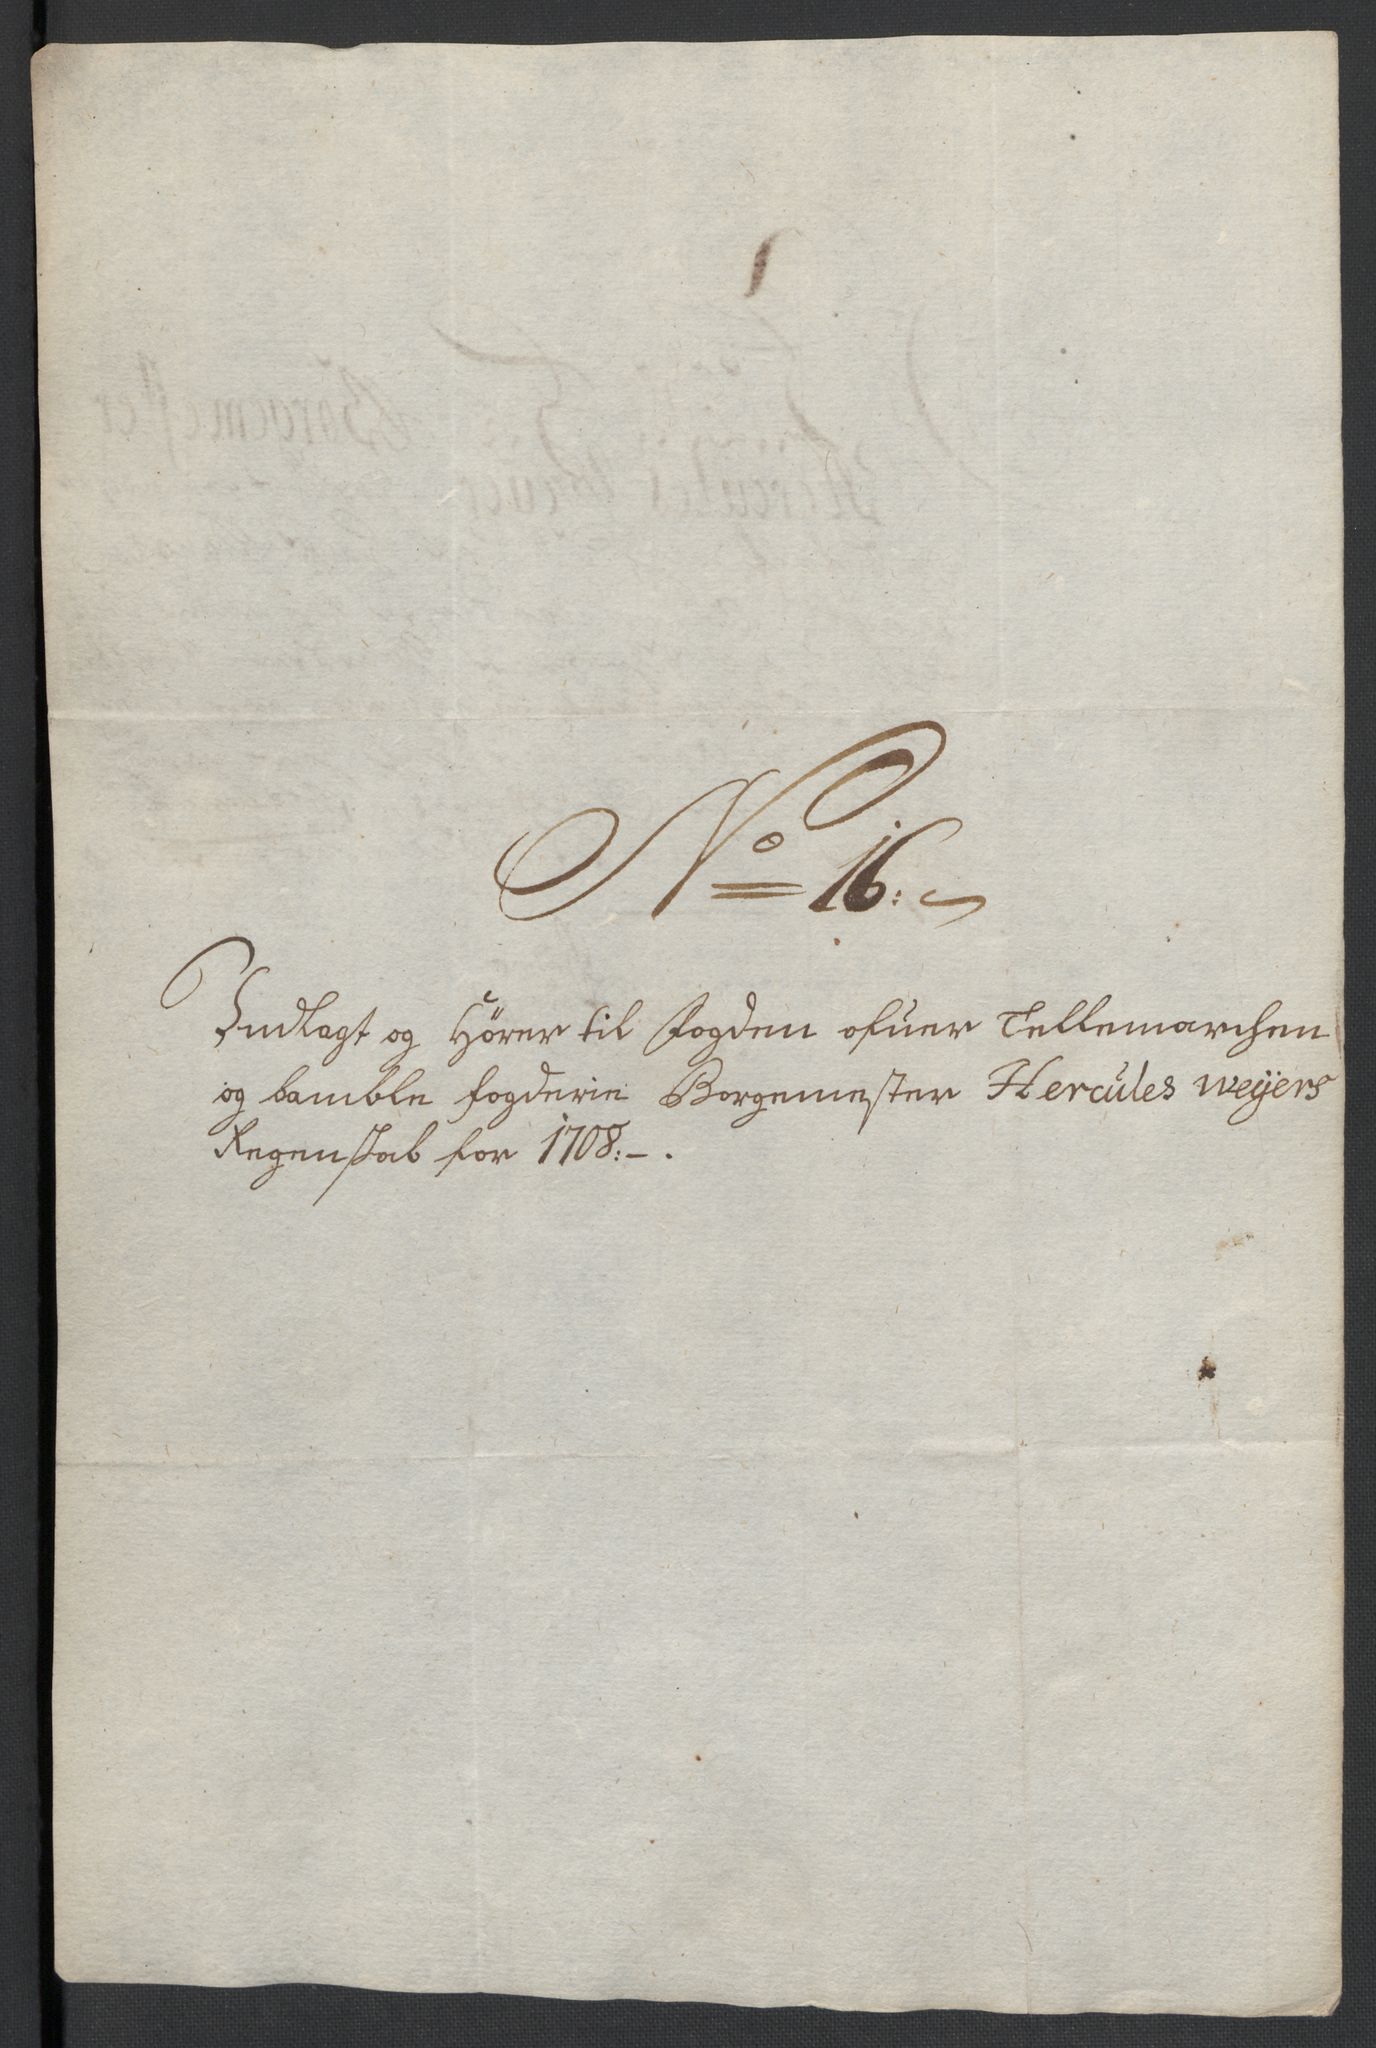 No 16:
Indlagt og Hörer til Fogden ofuer Tellemarchen
og bamble fogderie Borgemester Hercules weÿers
Regenskab for 1708:-.